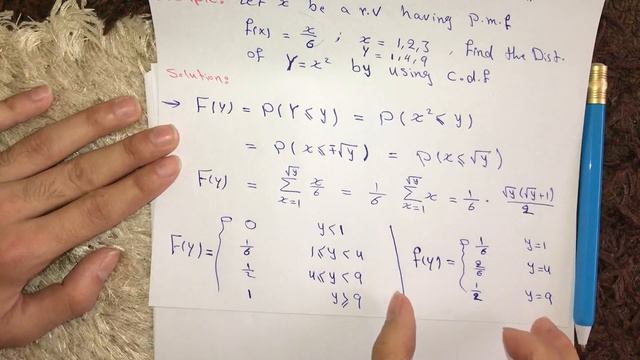 Example: Let x be a r.v having p.m.f
f(x) = x/6 ; x = 1,2,3 , find the Dist.
Y = 1,4,9
of Y = x² by using c.d.f
Solution:
→ F(y) = P(Y ≤ y) = P(x² ≤ y)
= P(x ≤ ∓√y) = P(x ≤ √y)
F(y) = √y Σ x=1 x/6 = 1/6 √y Σ x=1 x = 1/6 · √y(√y+1)/2
F(y) = { 0 y<1
1/6 1≤y<4
1/2 4≤y<9
1 y≥9
f(y) = { 1/6 y=1
2/6 y=4
1/2 y=9